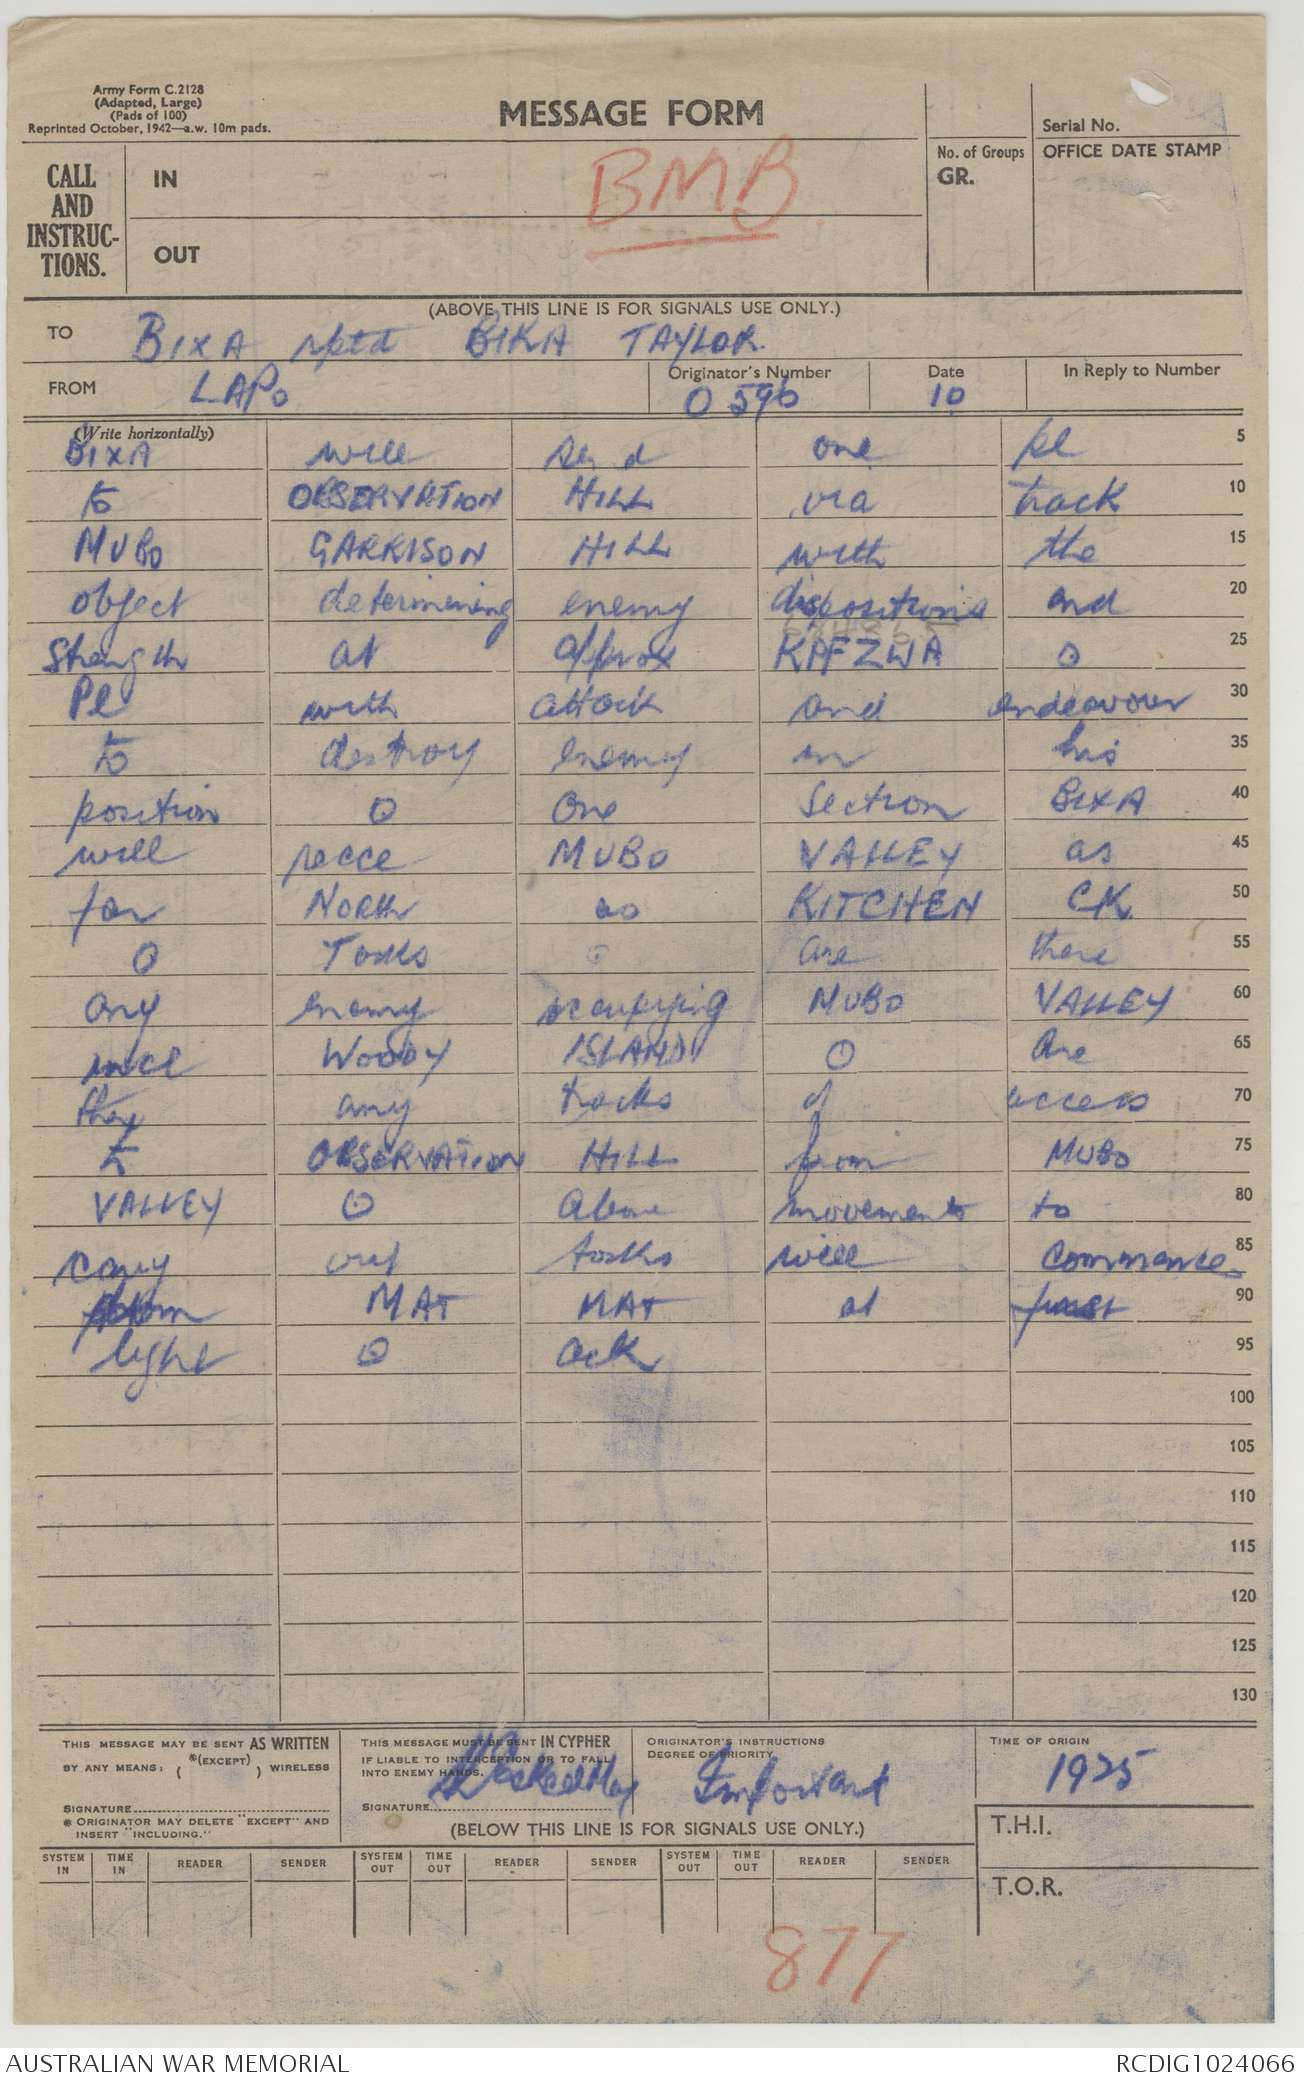 Army Form C.2128
(Adapted, Large)
(Pads of 100)
Reprinted October, 1942—a.w. 10m pads.
MESSAGE FORM
Serial No.
CALL AND INSTRUC-TIONS.
IN
BMB
No. of Groups
GR.
OFFICE DATE STAMP
OUT
(ABOVE THIS LINE IS FOR SIGNALS USE ONLY.)
TO BIXA rptd BIKA TAYLOR
FROM LAPO
Originator's Number O 596
Date 10
In Reply to Number
(Write horizontally)
BIXA will send one pl 5
to OBSERVATION HILL via track 10
MUBO GARRISON HILL with the 15
object determining enemy dispositions and 20
strength at approx KPFZWA ⊙ 25
Pl with attack and endeavour 30
to destroy enemy in his 35
position ⊙ One section BIXA 40
will recce MUBO VALLEY as 45
far North as KITCHEN CK 50
⊙ Tasks ⊙ are there 55
any enemy occupying MUBO VALLEY 60
incl WOODY ISLAND ⊙ Are 65
they any tracks of access 70
to OBSERVATION HILL from MUBO 75
VALLEY ⊙ Above movements to 80
carry out tasks will commence 85
from MAT MAT at first 90
light ⊙ ack 95
100
105
110
115
120
125
130
THIS MESSAGE MAY BE SENT AS WRITTEN
BY ANY MEANS: ( *(EXCEPT) ) WIRELESS
SIGNATURE
* ORIGINATOR MAY DELETE "EXCEPT" AND
INSERT "INCLUDING."
THIS MESSAGE MUST BE SENT IN CYPHER
IF LIABLE TO INTERCEPTION OR TO FALL
INTO ENEMY HANDS.
SIGNATURE
ORIGINATOR'S INSTRUCTIONS
DEGREE OF PRIORITY
Important
TIME OF ORIGIN
1925
(BELOW THIS LINE IS FOR SIGNALS USE ONLY.)
T.H.I.
T.O.R.
SYSTEM IN TIME IN READER SENDER SYSTEM OUT TIME OUT READER SENDER SYSTEM OUT TIME OUT READER SENDER
877
AUSTRALIAN WAR MEMORIAL
RCDIG1024066